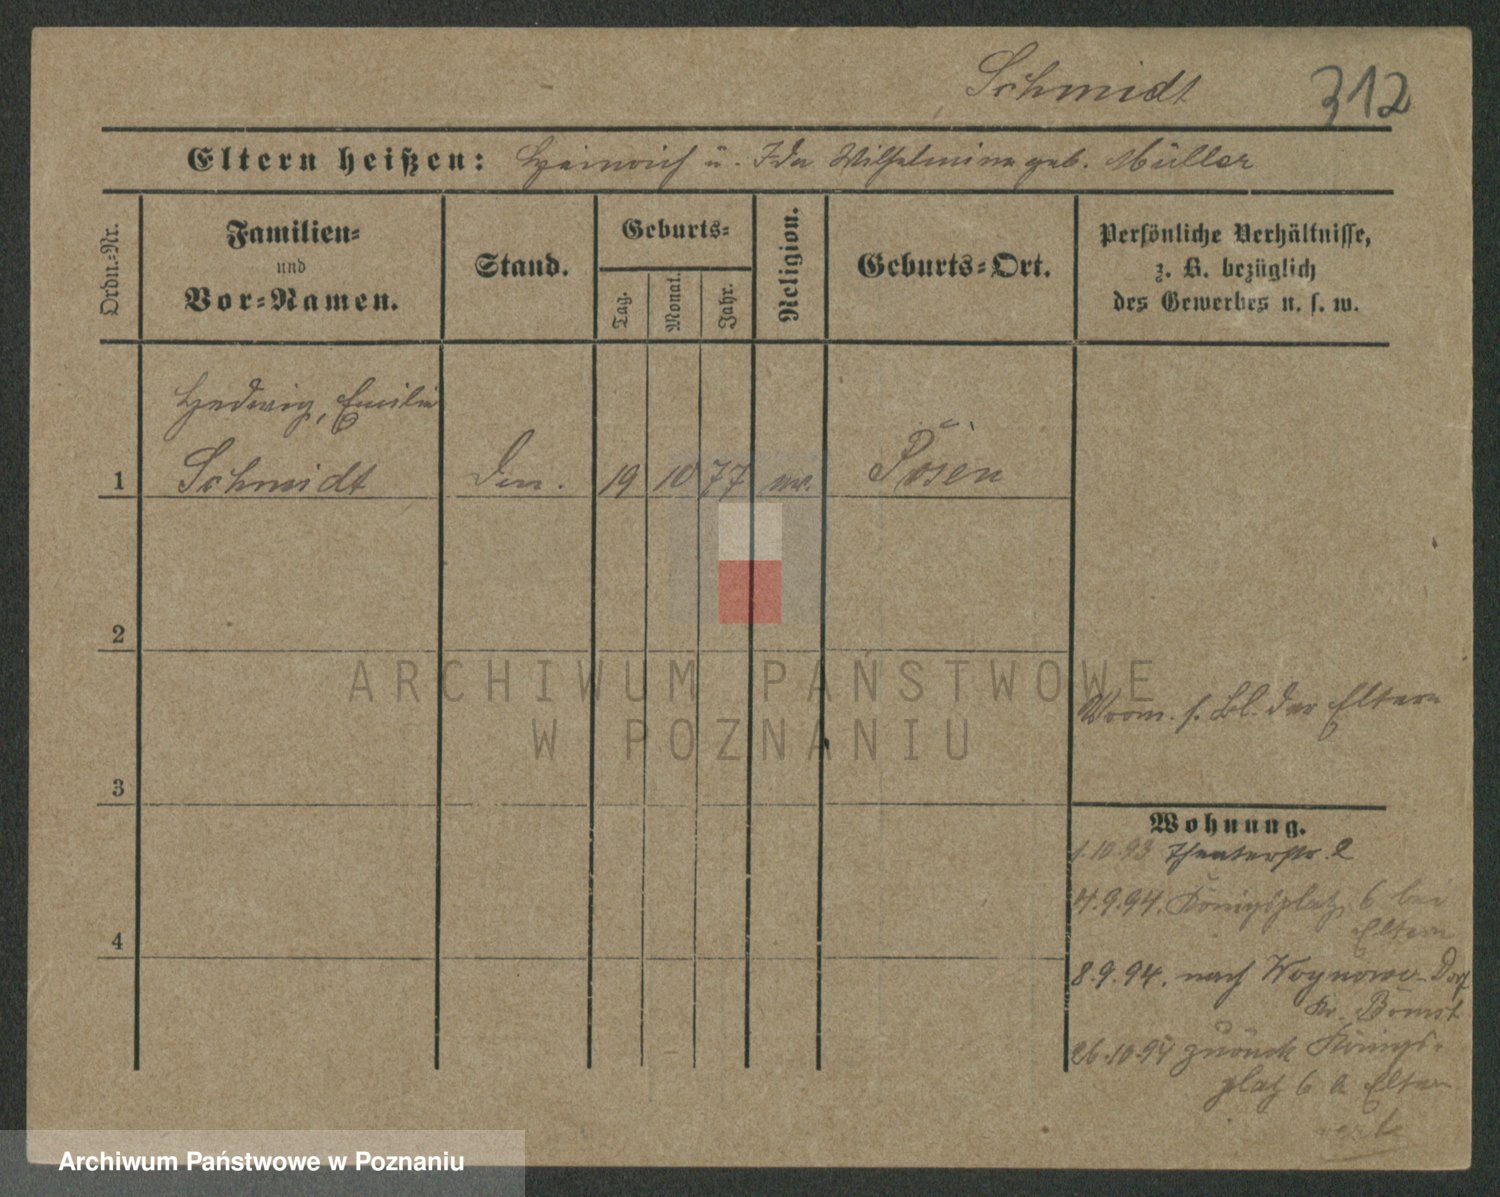 Schmidt 312
Eltern heißen: Heinrich u. Ida Wilhelmine geb. Müller
Ordn.-Nr.
Familien-
und
Vor-Namen.
Stand.
Geburts-
Tag. Monat. Jahr.
Religion.
Geburts-Ort.
Persönliche Verhältnisse,
z. B. bezüglich
des Gewerbes u. s. w.
Hedwig, Emilie
1 Schmidt 19 10 77 Posen
2
3
4
ARCHIWUM PAŃSTWOWE
W POZNANIU
Vorm. s. Bl. der Eltern
Wohnung.
1.10.93 Theaterstr. 2
4.9.94. Königsplatz 6 bei
Eltern
8.9.94. nach Woynowo-Dorf
Kr. Bomst
26.10.94 zurück Königs-
platz 6 b Eltern
Archiwum Państwowe w Poznaniu